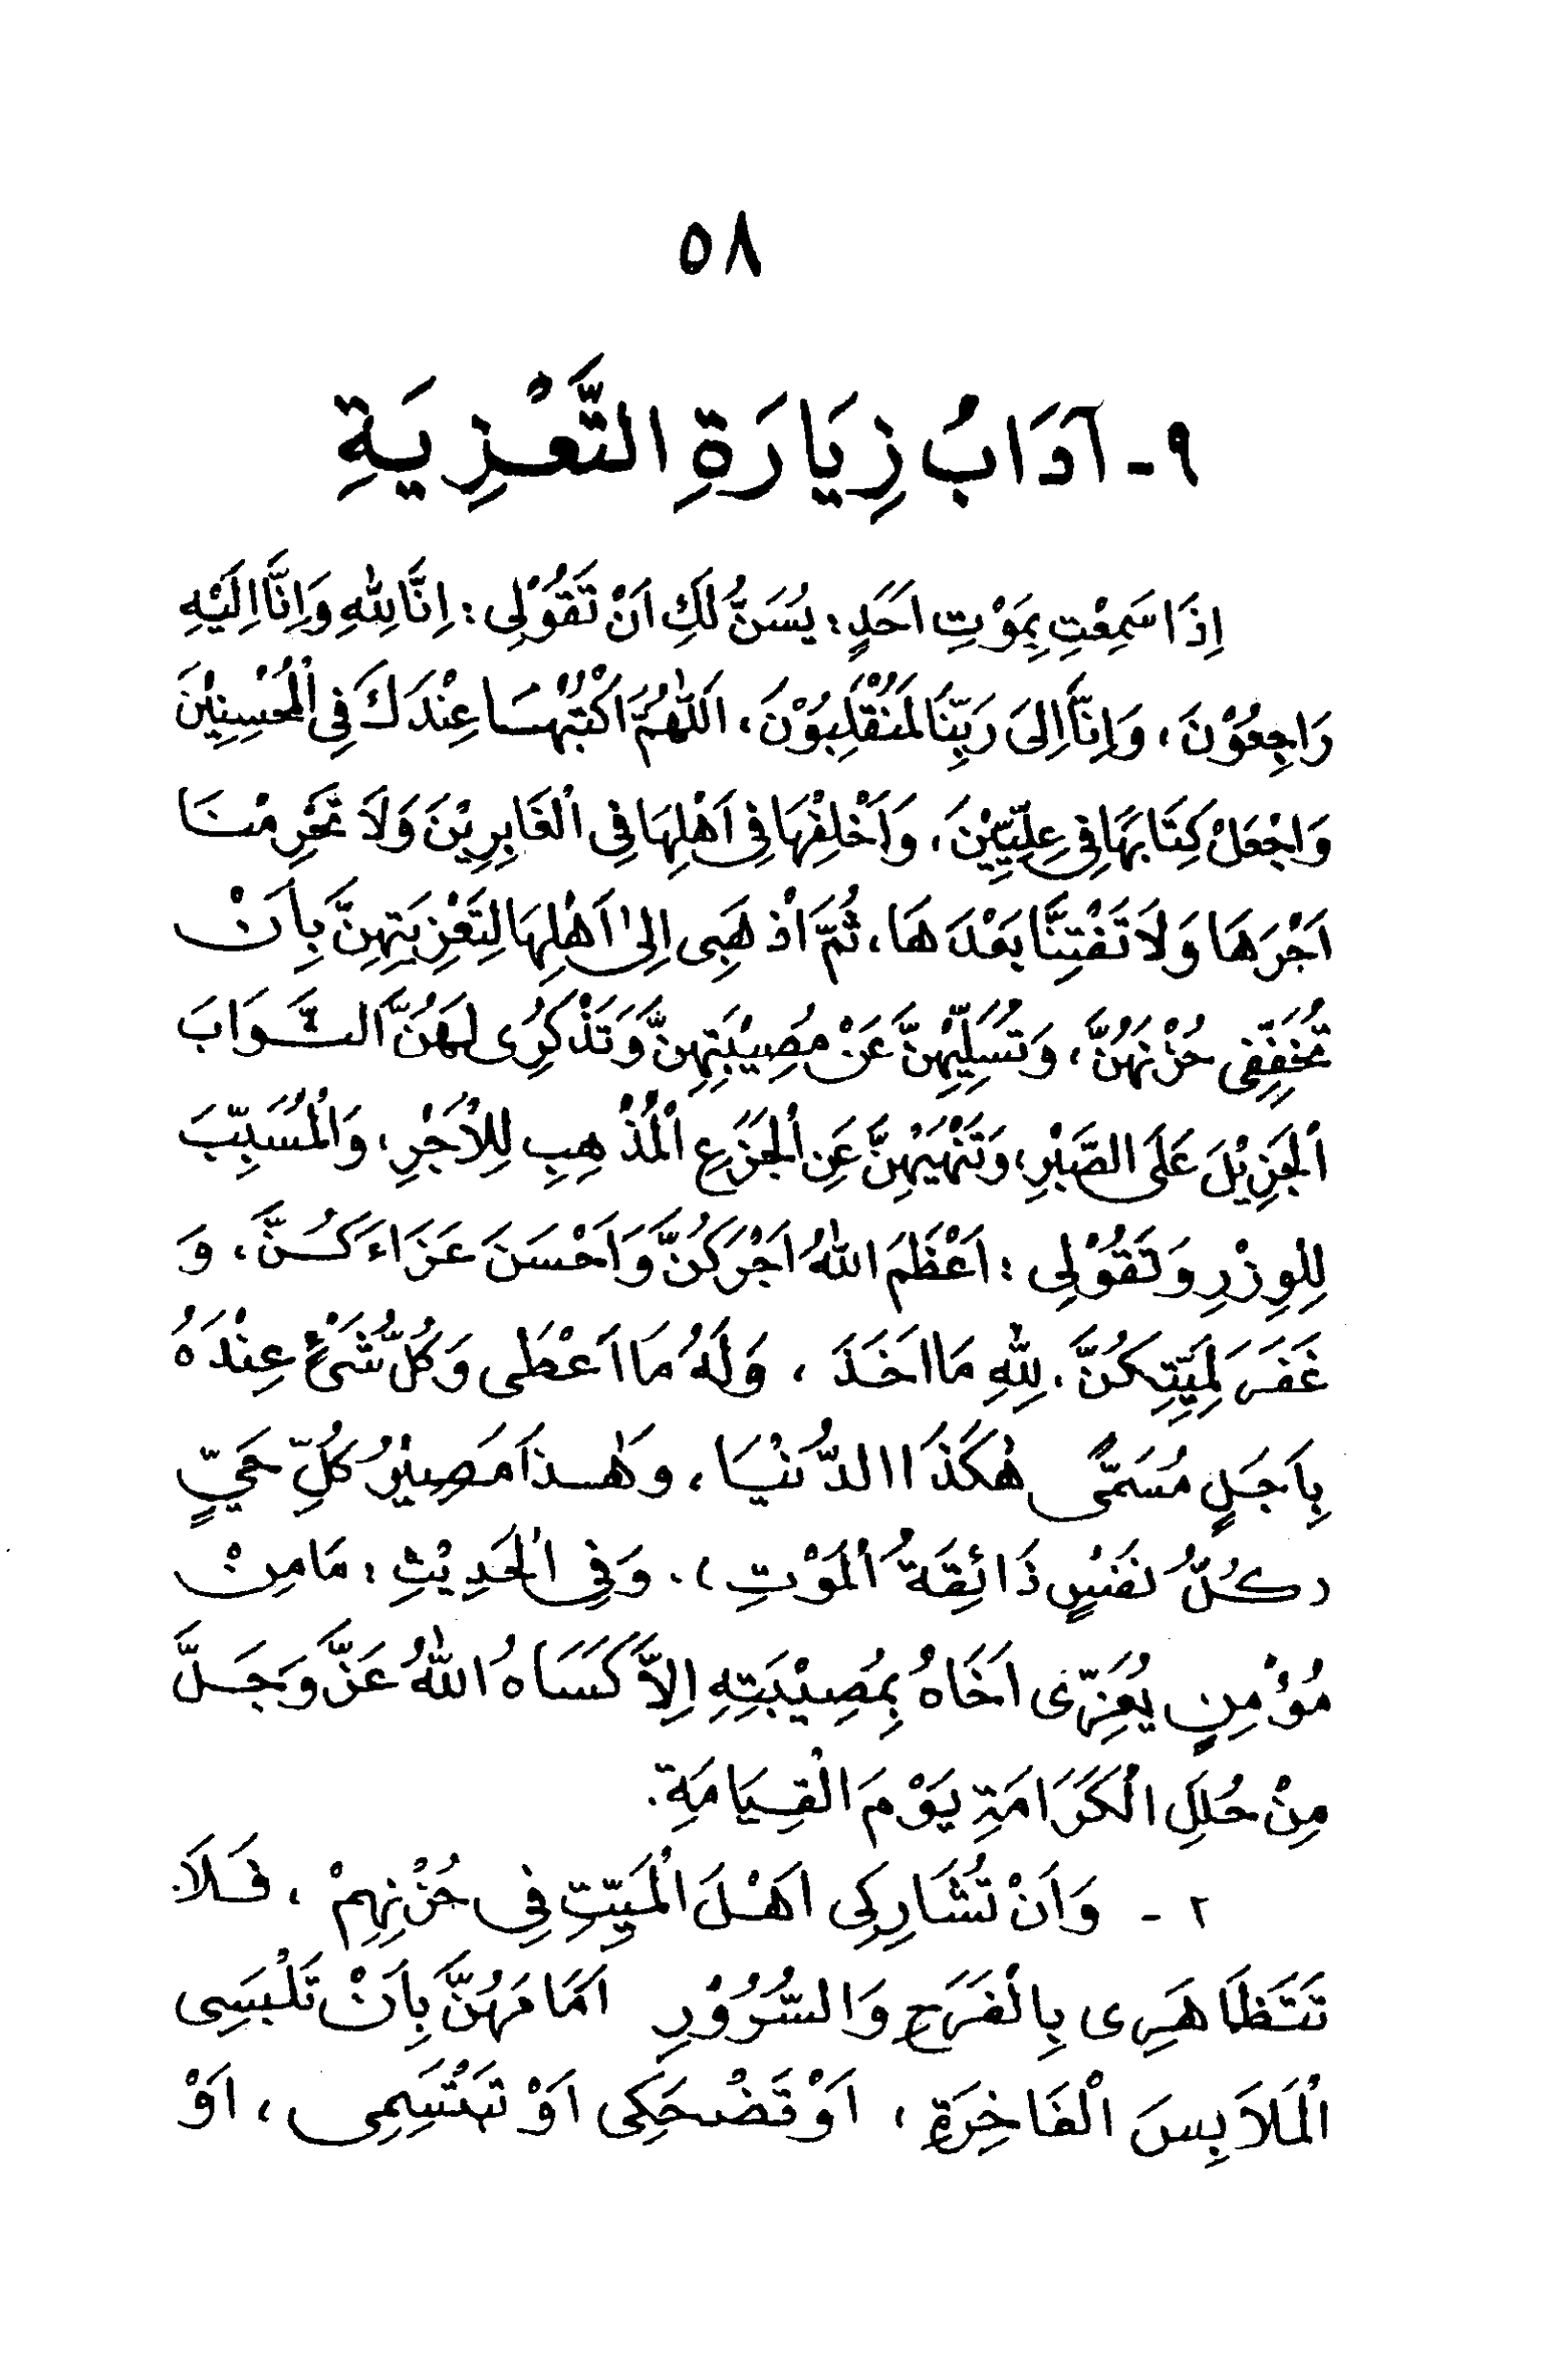 ٥٨
٩- آدَابُ زِيَارَةِ التَّعْزِيَةِ
اِذَا سَمِعْتِ بِمَوْتِ اَحَدٍ: يُسَنُّ لَكِ اَنْ تَقُوْلِى: اِنَّا لِلّٰهِ وَاِنَّا اِلَيْهِ
رَاجِعُوْنَ، وَاِنَّا اِلىَ رَبِّنَا لَمُنْقَلِبُوْنَ، اَللّٰهُمَّ اكْتُبْهَا عِنْدَكَ فِى الْمُحْسِنِيْنَ
وَاجْعَلْ كِتَابَهَا فِى عِلِّيِّيْنَ، وَاَخْلِفْهَا فِى اَهْلِهَا فِى الْغَابِرِيْنَ وَلَا تَحْرِمْنَا
اَجْرَهَا وَلَا تَفْتِنَّا بَعْدَهَا، ثُمَّ اذْهَبِى اِلىٰ اَهْلِهَا لِتَعْزِيَتِهِنَّ بِاَنْ
تُخَفِّفِى حُزْنَهُنَّ، وَتُسَلِّيْهِنَّ عَنْ مُصِيْبَتِهِنَّ وَتَذْكُرِى لَهُنَّ الثَّوَابَ
الْجَزِيْلَ عَلَى الصَّبْرِ، وَتَنْهَيْهِنَّ عَنِ الْجَزَعِ الْمُذْهِبِ لِلْاَجْرِ، وَالْمُسَبِّبَ
لِلْوِزْرِ وَتَقُوْلِى: اَعْظَمَ اللّٰهُ اَجْرَكُنَّ وَاَحْسَنَ عَزَاءَكُنَّ، وَ
غَفَرَ لِمَيِّتِكُنَّ. لِلّٰهِ مَا اَخَذَ، وَلَهُ مَا اَعْطَى وَكُلُّ شَىْءٍ عِنْدَهُ
بِاَجَلٍ مُسَمًّى هٰكَذَا الدُّنْيَا، وَهٰذَا مَصِيْرُ كُلِّ حَيٍّ
(كُلُّ نَفْسٍ ذَائِقَةُ الْمَوْتِ). وَفِى الْحَدِيْثِ: مَا مِنْ
مُؤْمِنٍ يُعَزِّى اَخَاهُ بِمُصِيْبَتِهِ اِلَّا كَسَاهُ اللّٰهُ عَزَّ وَجَلَّ
مِنْ حُلَلِ الْكَرَامَةِ يَوْمَ الْقِيَامَةِ.
٢ - وَاَنْ تُشَارِكِى اَهْلَ الْمَيِّتِ فِى حُزْنِهِمْ، فَلَا
تَتَظَاهَرِى بِالْفَرَحِ وَالسُّرُوْرِ اَمَامَهُنَّ بِاَنْ تَلْبَسِى
الْمَلَابِسَ الْفَاخِرَةِ، اَوْ تَضْحَكِى اَوْ تَبْتَسِمِى، اَوْ